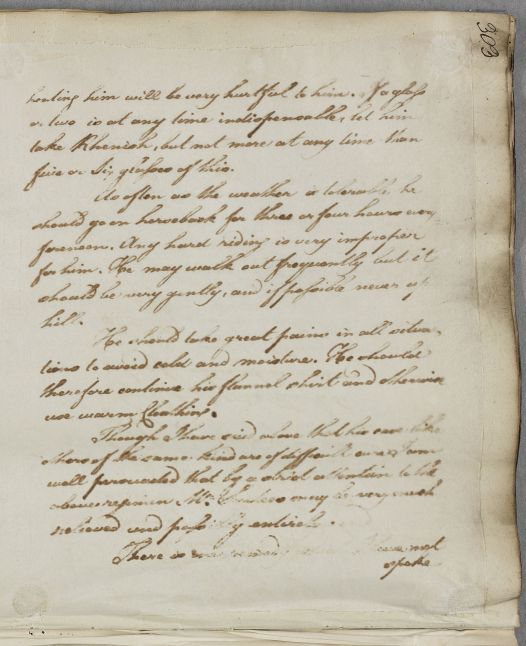 303
heating him will be very hurtful to him. If a glass
or two is at any time indispensable, let him
take Rhenish, but not more at any time than
five or Six glasses of this.
As often as the weather is tolerable he
should go on horseback for three or four hours every
forenoon. Any hard riding is very improper
for him. He may walk out frequently but it
should be very gently, and if possible never up
hill.
He should take great pains in all situa-
tions to avoid cold and moisture. He should
therefore continue his flannel shirt and otherwise
use warm Cloathing.
Though I have said above that his case like
others of the same kind are of difficult cure I am
well persuaded that by a strict attention to the
above regimen Mr. may be very much
relieved and possibly entirely
There is I have not
spoke